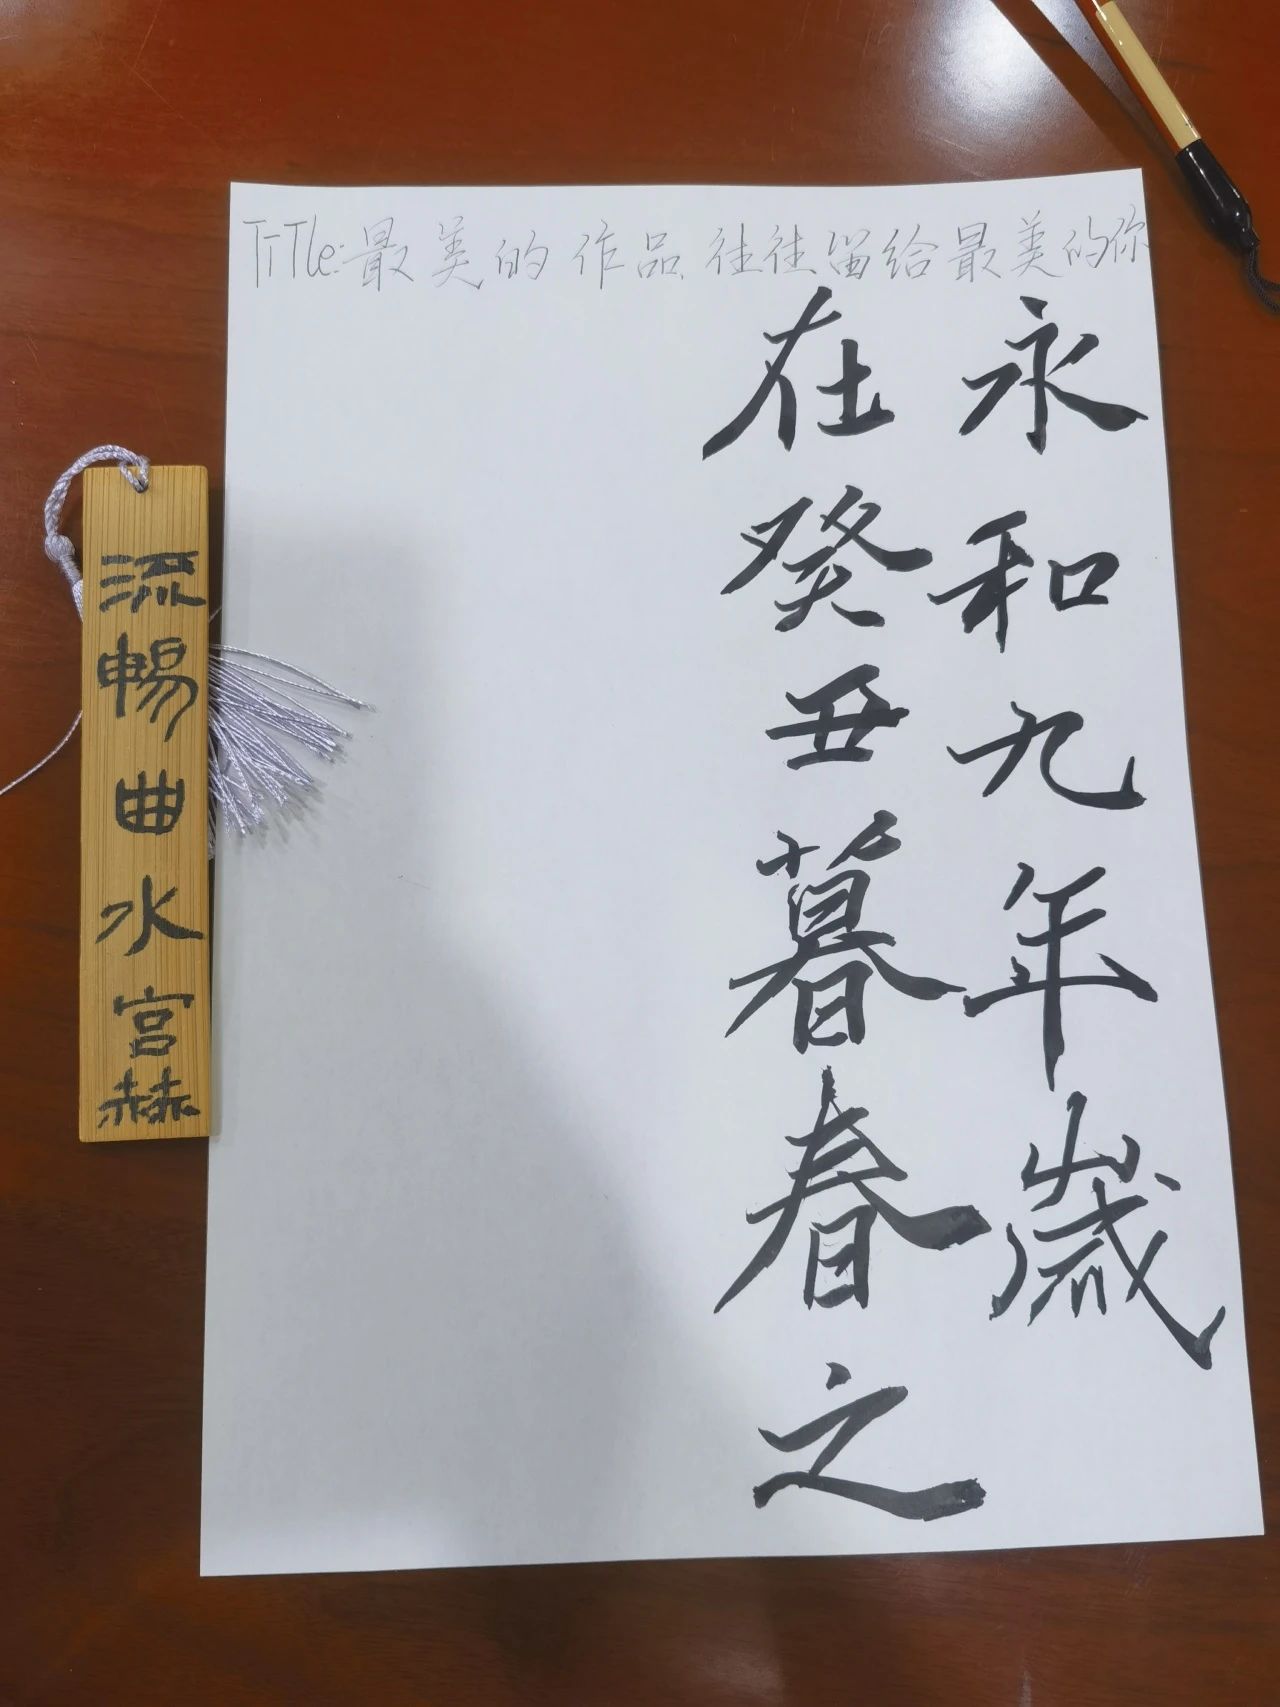 TiTle:最美的作品往往留给最美的你
永和九年歲
在癸丑暮春之
流暢曲水宫赫